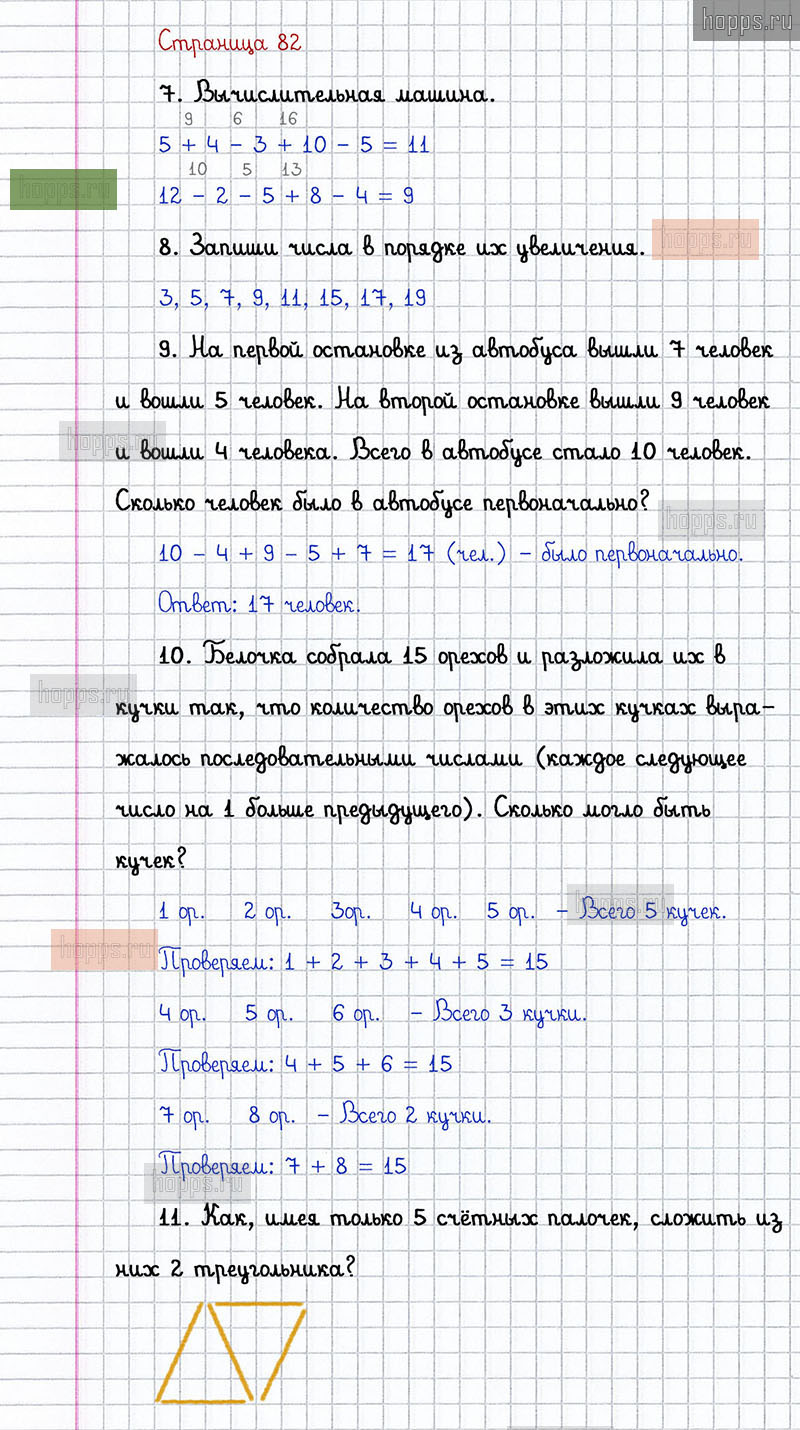 hopps.ru
Страница 82
7. Вычислительная машина.
9 6 16
5 + 4 - 3 + 10 - 5 = 11
10 5 13
12 - 2 - 5 + 8 - 4 = 9
hopps.ru
8. Запиши числа в порядке их увеличения.
hopps.ru
3, 5, 7, 9, 11, 15, 17, 19
9. На первой остановке из автобуса вышли 7 человек
и вошли 5 человек. На второй остановке вышли 9 человек
hopps.ru
и вошли 4 человека. Всего в автобусе стало 10 человек.
Сколько человек было в автобусе первоначально?
hopps.ru
10 - 4 + 9 - 5 + 7 = 17 (чел.) - было первоначально.
Ответ: 17 человек.
10. Белочка собрала 15 орехов и разложила их в
hopps.ru
кучки так, что количество орехов в этих кучках выра-
жалось последовательными числами (каждое следующее
число на 1 больше предыдущего). Сколько могло быть
кучек?
1 ор. 2 ор. 3ор. 4 ор. 5 ор. - Всего 5 кучек.
hopps.ru
hopps.ru
Проверяем: 1 + 2 + 3 + 4 + 5 = 15
4 ор. 5 ор. 6 ор. - Всего 3 кучки.
Проверяем: 4 + 5 + 6 = 15
7 ор. 8 ор. - Всего 2 кучки.
Проверяем: 7 + 8 = 15
hopps.ru
11. Как, имея только 5 счётных палочек, сложить из
них 2 треугольника?